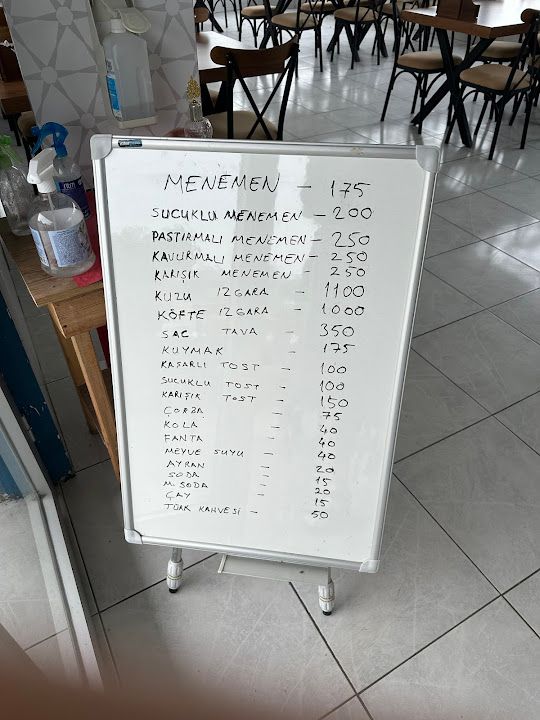 MENEMEN - 175
SUCUKLU MENEMEN - 200
PASTIRMALI MENEMEN - 250
KAVURMALI MENEMEN - 250
KARIŞIK MENEMEN - 250
KUZU IZGARA - 1100
KÖFTE IZGARA - 1000
SAC TAVA - 350
KUYMAK - 175
KAŞARLI TOST - 100
SUCUKLU TOST - 100
KARIŞIK TOST - 150
ÇORBA - 75
KOLA - 40
FANTA - 40
MEYVE SUYU - 40
AYRAN - 20
SODA - 15
M. SODA - 20
ÇAY - 15
TÜRK KAHVESİ - 50